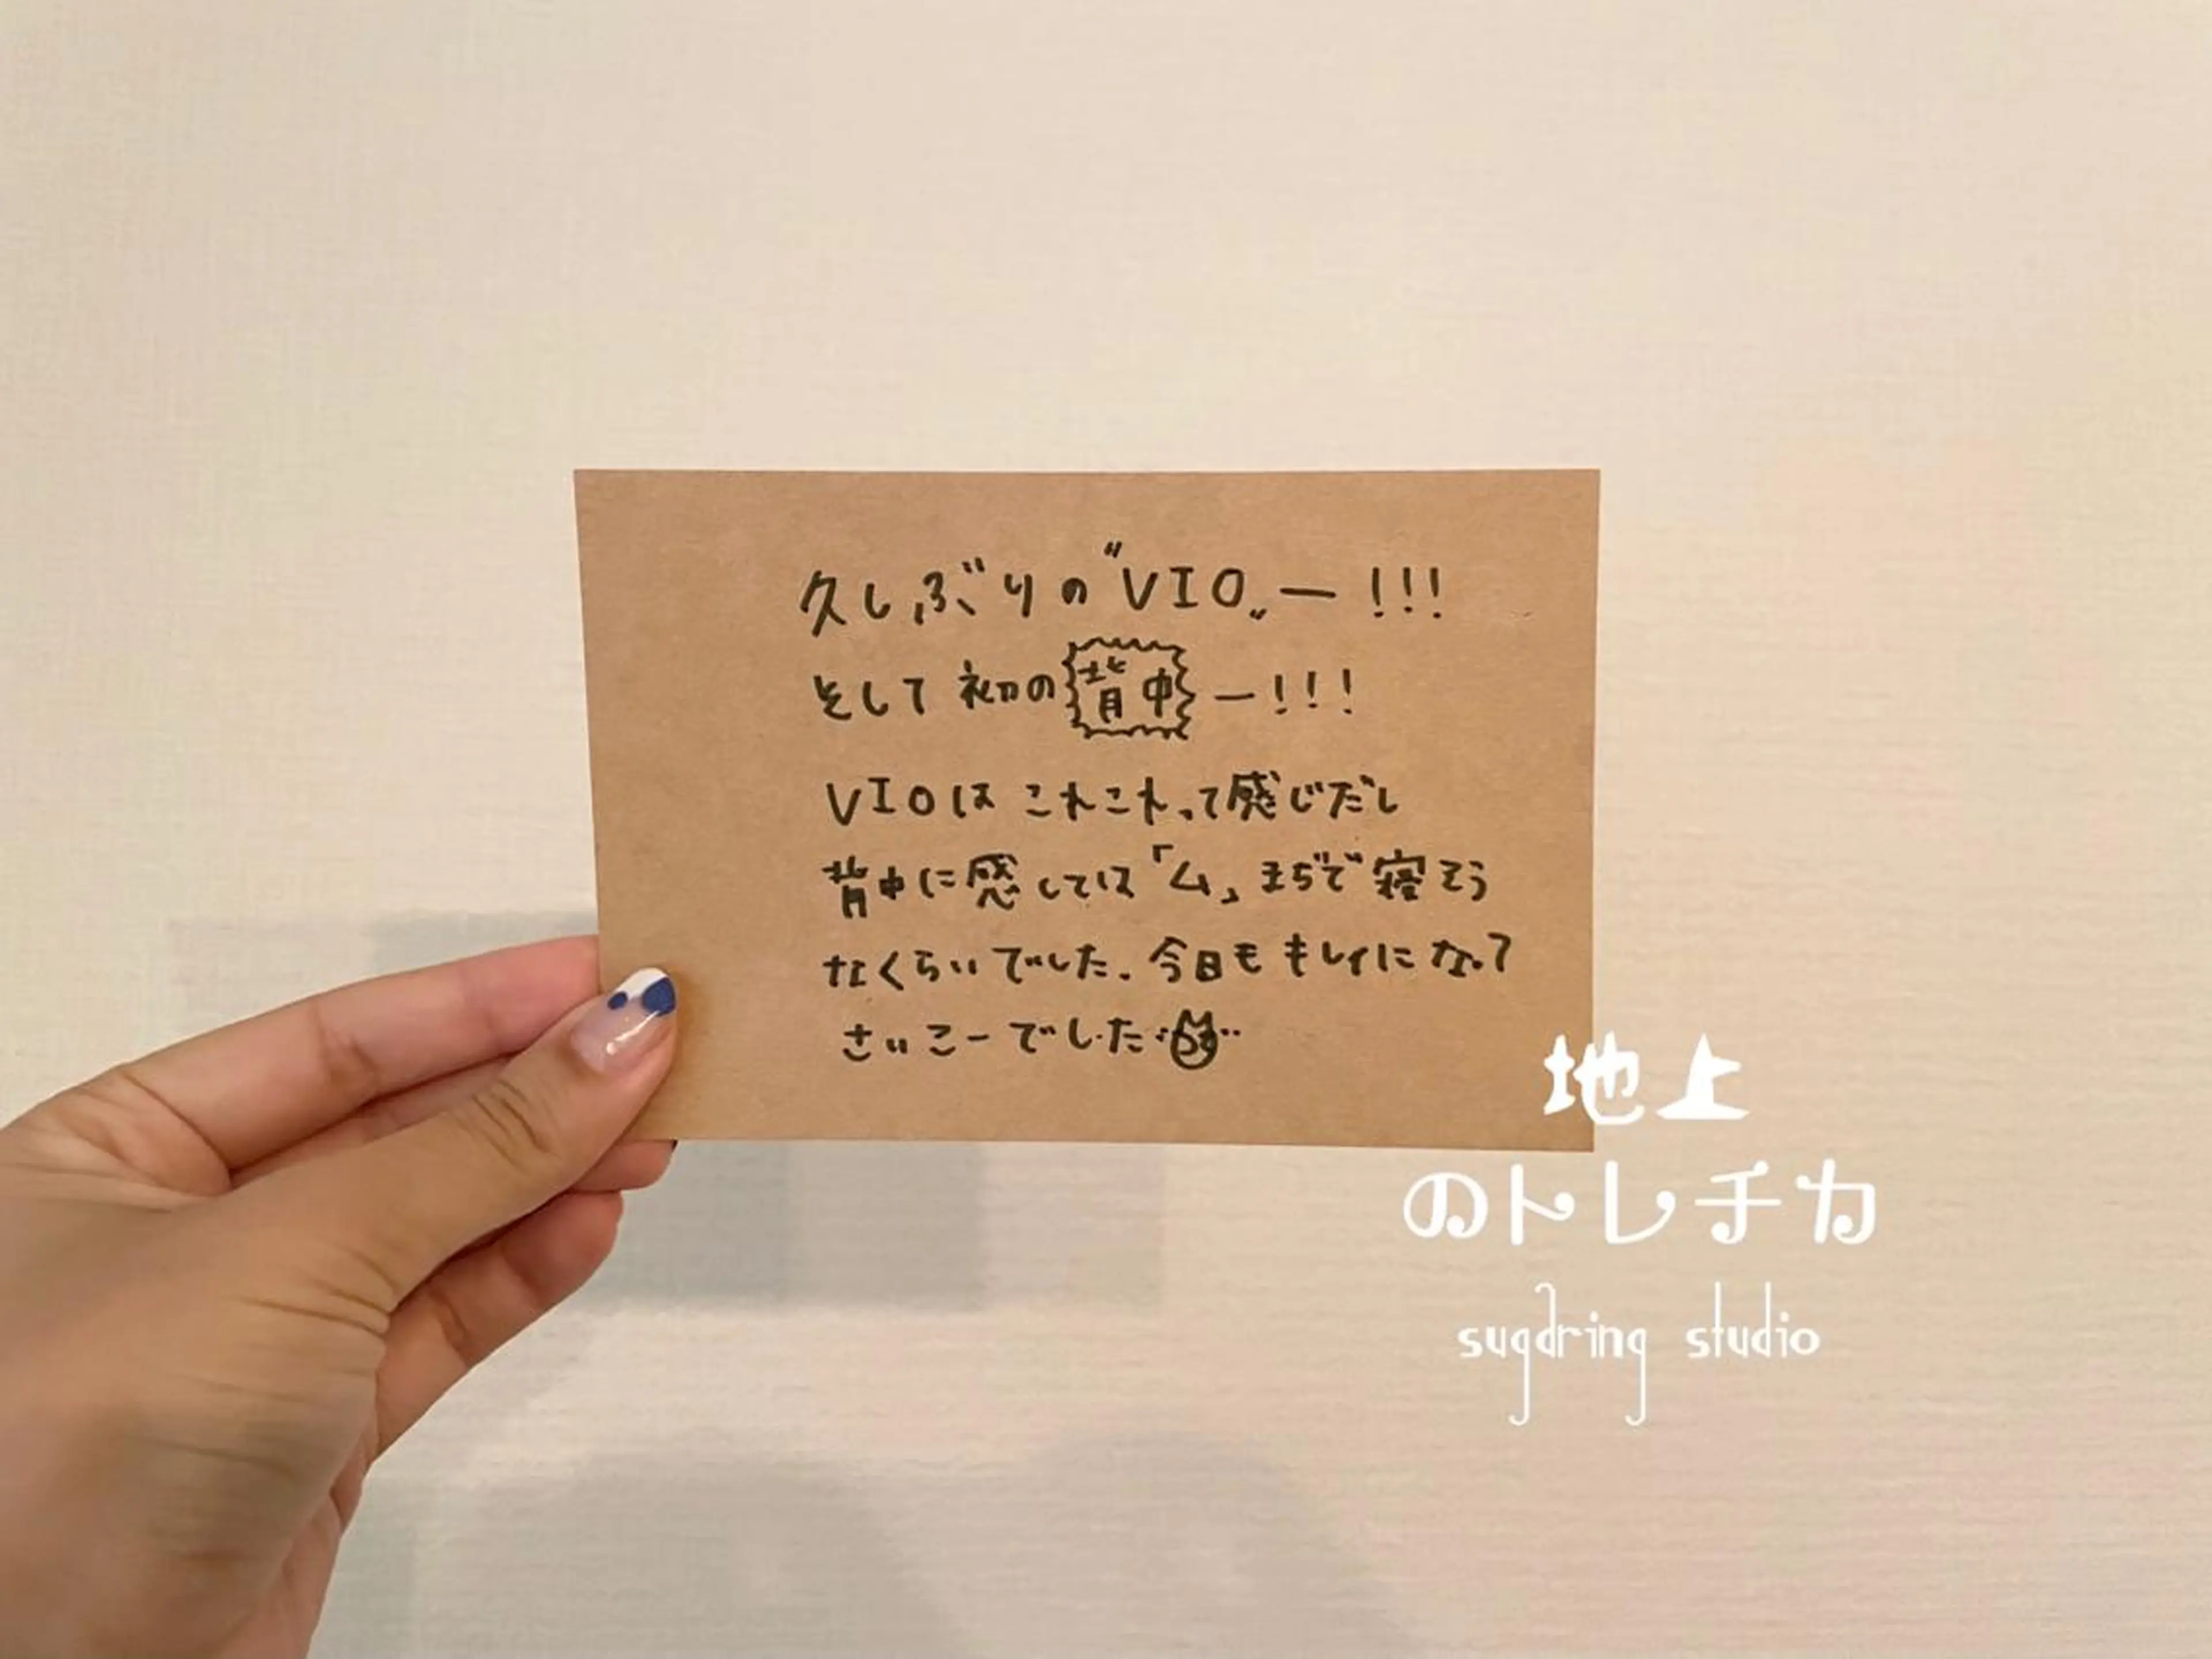 久しぶりの“VIO„ー!!!
そして初の背中ー!!!
VIOはこれこれって感じだし
背中に感しては「ム」まぢで寝そう
なくらいでした.今日もキレイになって
さいこーでした
地上
のトレチカ
sugdring studio